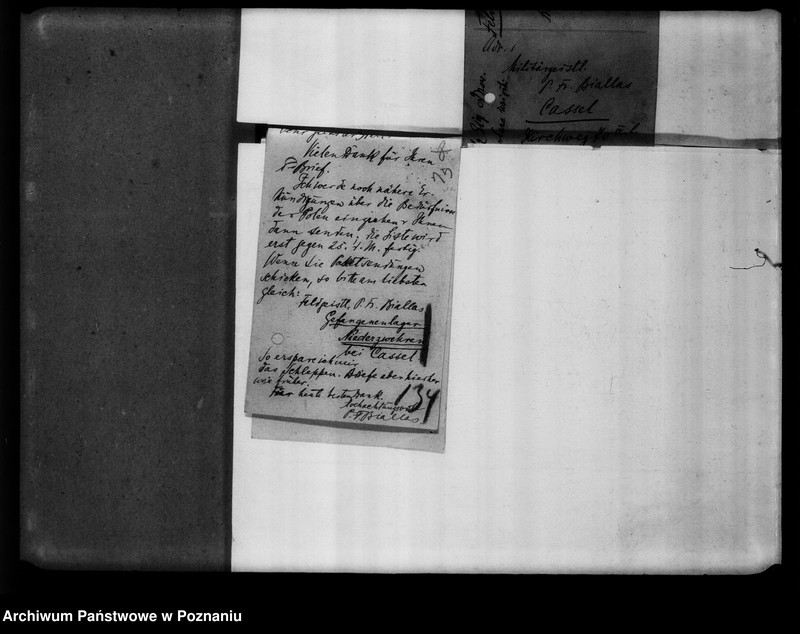 Adr.:
Militärgeistl.
P. Fr. Biallas
Cassel
Vielen Dank für Ihren
Brief.
Ich werde noch nähere Er-
kundigungen über die Bedürfnisse
der Polen eingehen u. Ihnen
dann senden; die Liste wird
erst gegen 25. d. M. fertig.
Wenn Sie Paketsendungen
schicken, so bitte am liebsten
gleich:
Feldgeistl. P. Fr. Biallas
Gefangenenlager
Niederzwehren
bei Cassel
So erspare ich mir
das Schleppen. Briefe aber hierher
wie früher.
Für heute besten Dank.
Hochachtungsvoll
P. Fr. Biallas
134
Archiwum Państwowe w Poznaniu